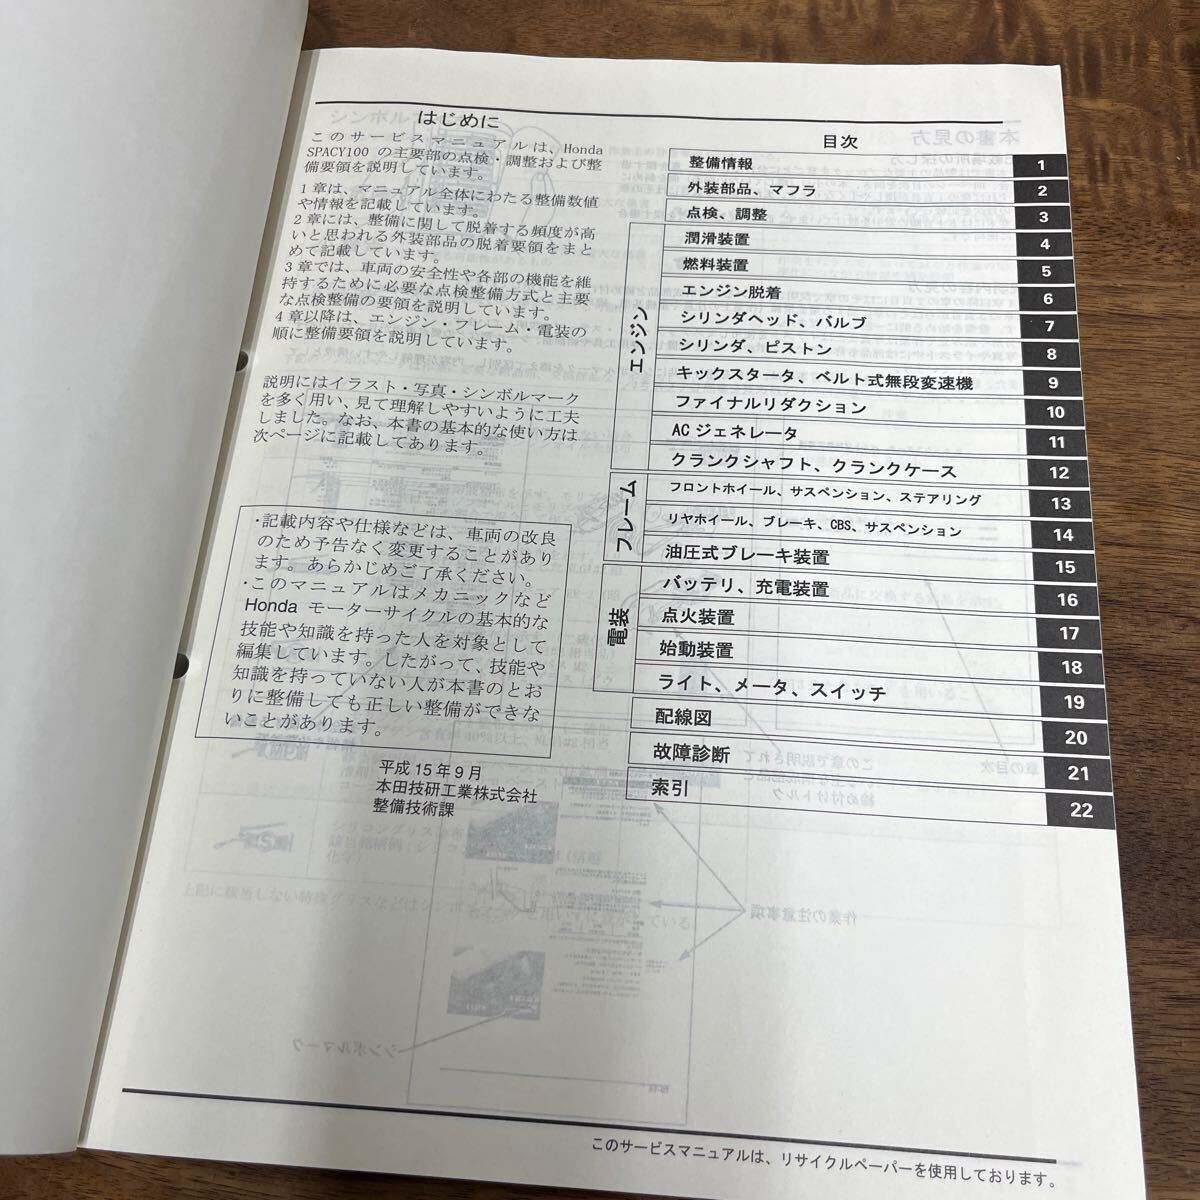 はじめに
このサービスマニュアルは、Honda
SPACY100 の主要部の点検・調整および整
備要領を説明しています。
1 章は、マニュアル全体にわたる整備数値
や情報を記載しています。
2 章には、整備に関して脱着する頻度が高
いと思われる外装部品の脱着要領をまと
めて記載しています。
3 章では、車両の安全性や各部の機能を維
持するために必要な点検整備方式と主要
な点検整備の要領を説明しています。
4 章以降は、エンジン・フレーム・電装の
順に整備要領を説明しています。
説明にはイラスト・写真・シンボルマーク
を多く用い、見て理解しやすいように工夫
しました。なお、本書の基本的な使い方は
次ページに記載してあります。
・記載内容や仕様などは、車両の改良
のため予告なく変更することがあり
ます。あらかじめご了承ください。
・このマニュアルはメカニックなど
Honda モーターサイクルの基本的な
技能や知識を持った人を対象として
編集しています。したがって、技能や
知識を持っていない人が本書のとお
りに整備しても正しい整備ができな
いことがあります。
平成 15 年 9 月
本田技研工業株式会社
整備技術課
目次
整備情報 1
外装部品、マフラ 2
点検、調整 3
エンジン
潤滑装置 4
燃料装置 5
エンジン脱着 6
シリンダヘッド、バルブ 7
シリンダ、ピストン 8
キックスタータ、ベルト式無段変速機 9
ファイナルリダクション 10
AC ジェネレータ 11
クランクシャフト、クランクケース 12
フレーム
フロントホイール、サスペンション、ステアリング 13
リヤホイール、ブレーキ、CBS、サスペンション 14
油圧式ブレーキ装置 15
電装
バッテリ、充電装置 16
点火装置 17
始動装置 18
ライト、メータ、スイッチ 19
配線図 20
故障診断 21
索引 22
このサービスマニュアルは、リサイクルペーパーを使用しております。